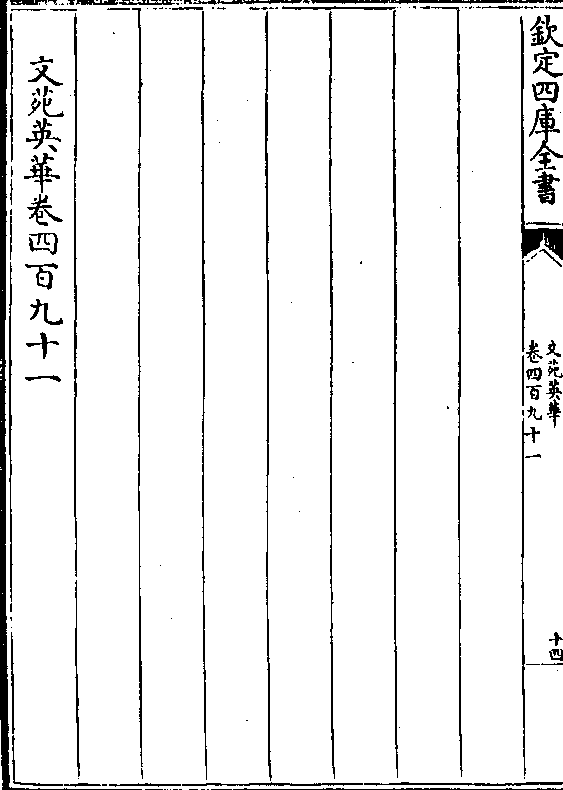 欽定四庫全書
文苑英華
卷四百九十一
十四
文苑英華卷四百九十一